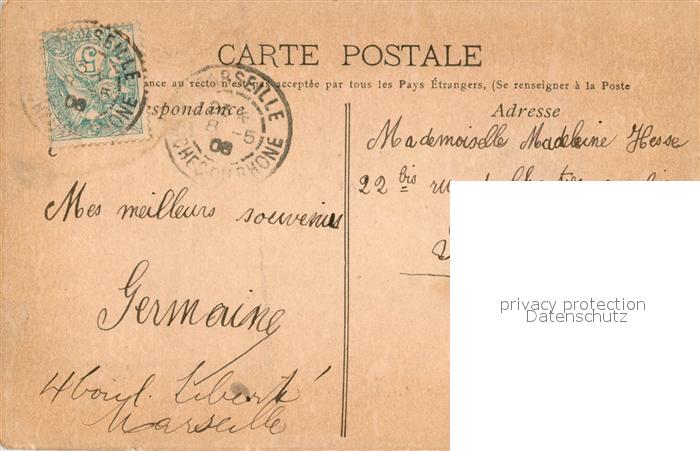 CARTE POSTALE
ance au recto n'est pas acceptée par tous les Pays Étrangers, (Se renseigner à la Poste
spondance
Adresse
MARSEILLE
8 - 5
08
BCHES DU RHONE
5
Mes meilleurs souvenirs
Germaine
4 boul. Liberté
Marseille
Mademoiselle Madeleine Hesse
22 bis
privacy protection
Datenschutz